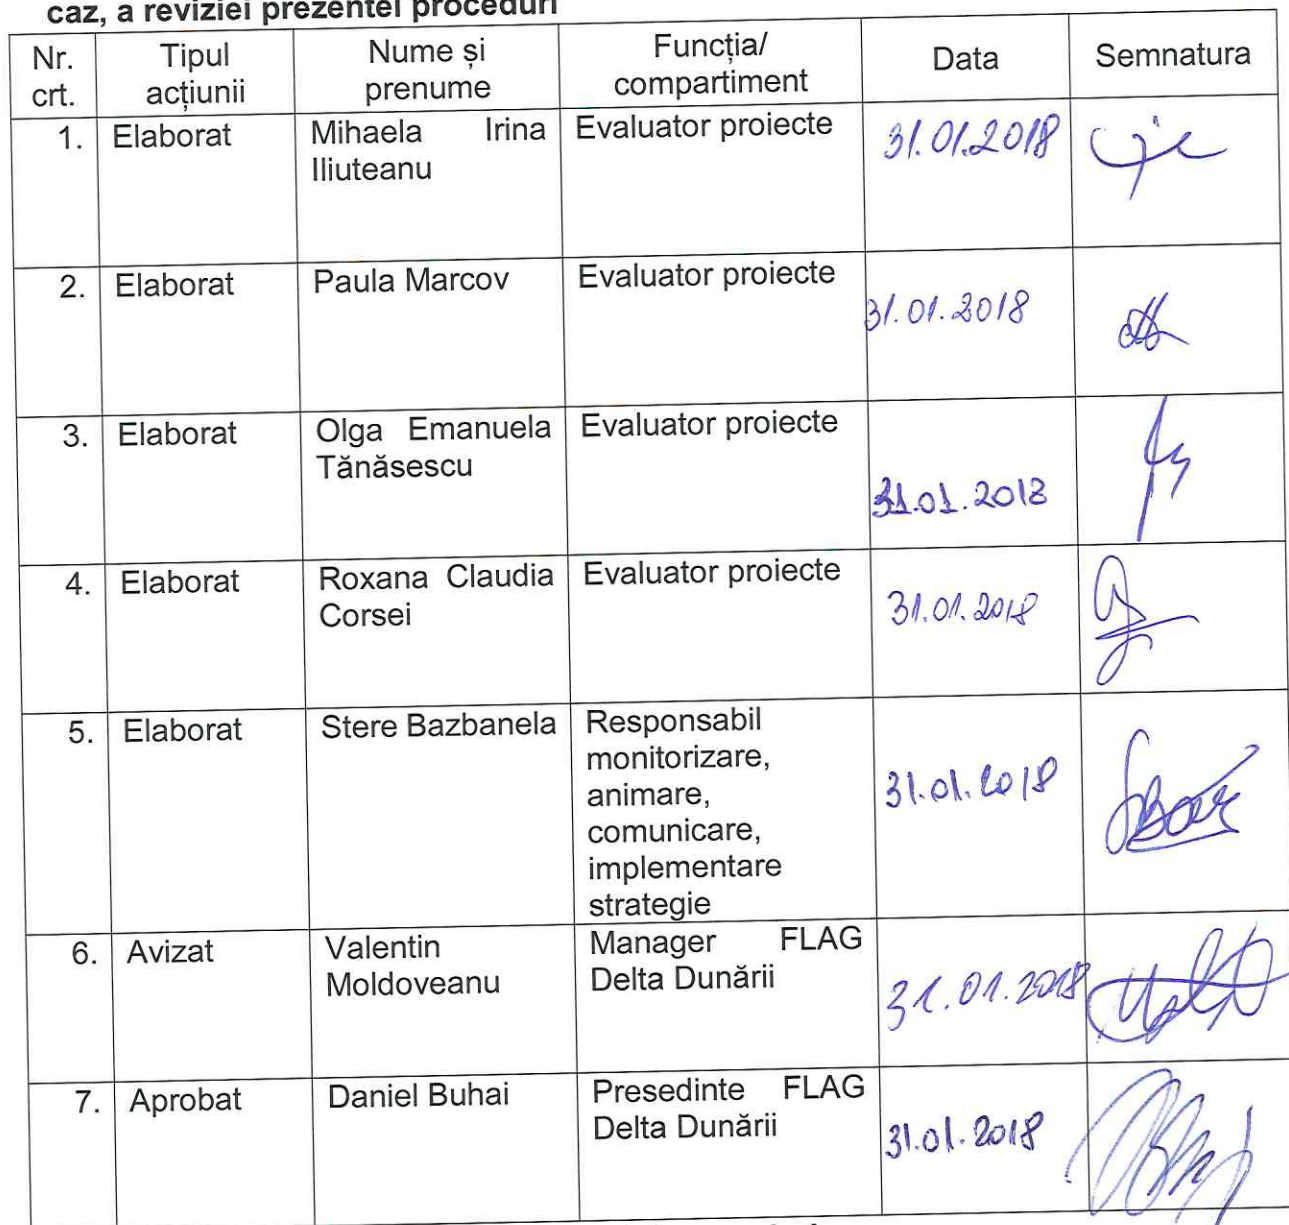 caz, a reviziei prezentei proceduri
Nr. crt. Tipul acțiunii Nume și prenume Funcția/ compartiment Data Semnatura
1. Elaborat Mihaela Irina Iliuteanu Evaluator proiecte 31.01.2018
2. Elaborat Paula Marcov Evaluator proiecte 31.01.2018
3. Elaborat Olga Emanuela Tănăsescu Evaluator proiecte 31.01.2018
4. Elaborat Roxana Claudia Corsei Evaluator proiecte 31.01.2018
5. Elaborat Stere Bazbanela Responsabil monitorizare, animare, comunicare, implementare strategie 31.01.2018
6. Avizat Valentin Moldoveanu Manager FLAG Delta Dunării 31.01.2018
7. Aprobat Daniel Buhai Presedinte FLAG Delta Dunării 31.01.2018